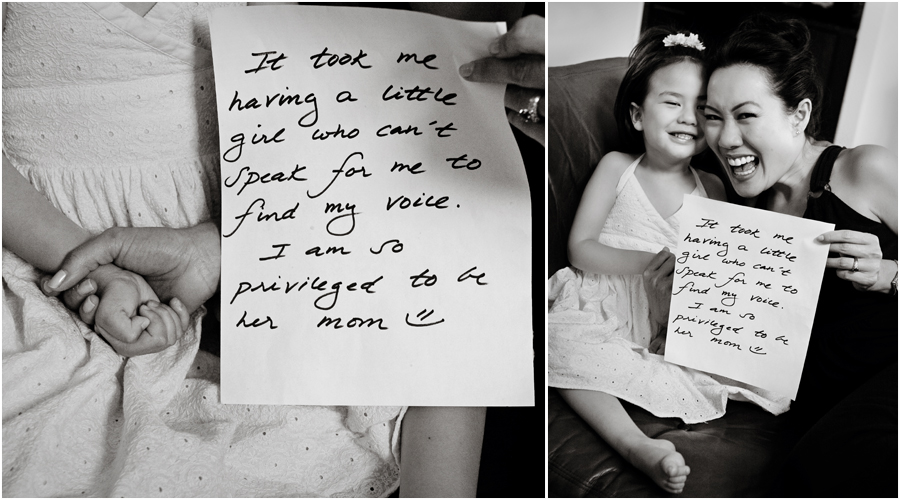 It took me
having a little
girl who can't
speak for me to
find my voice.
I am so
privileged to be
her mom
It took me
having a little
girl who can't
speak for me to
find my voice.
I am so
privileged to be
her mom